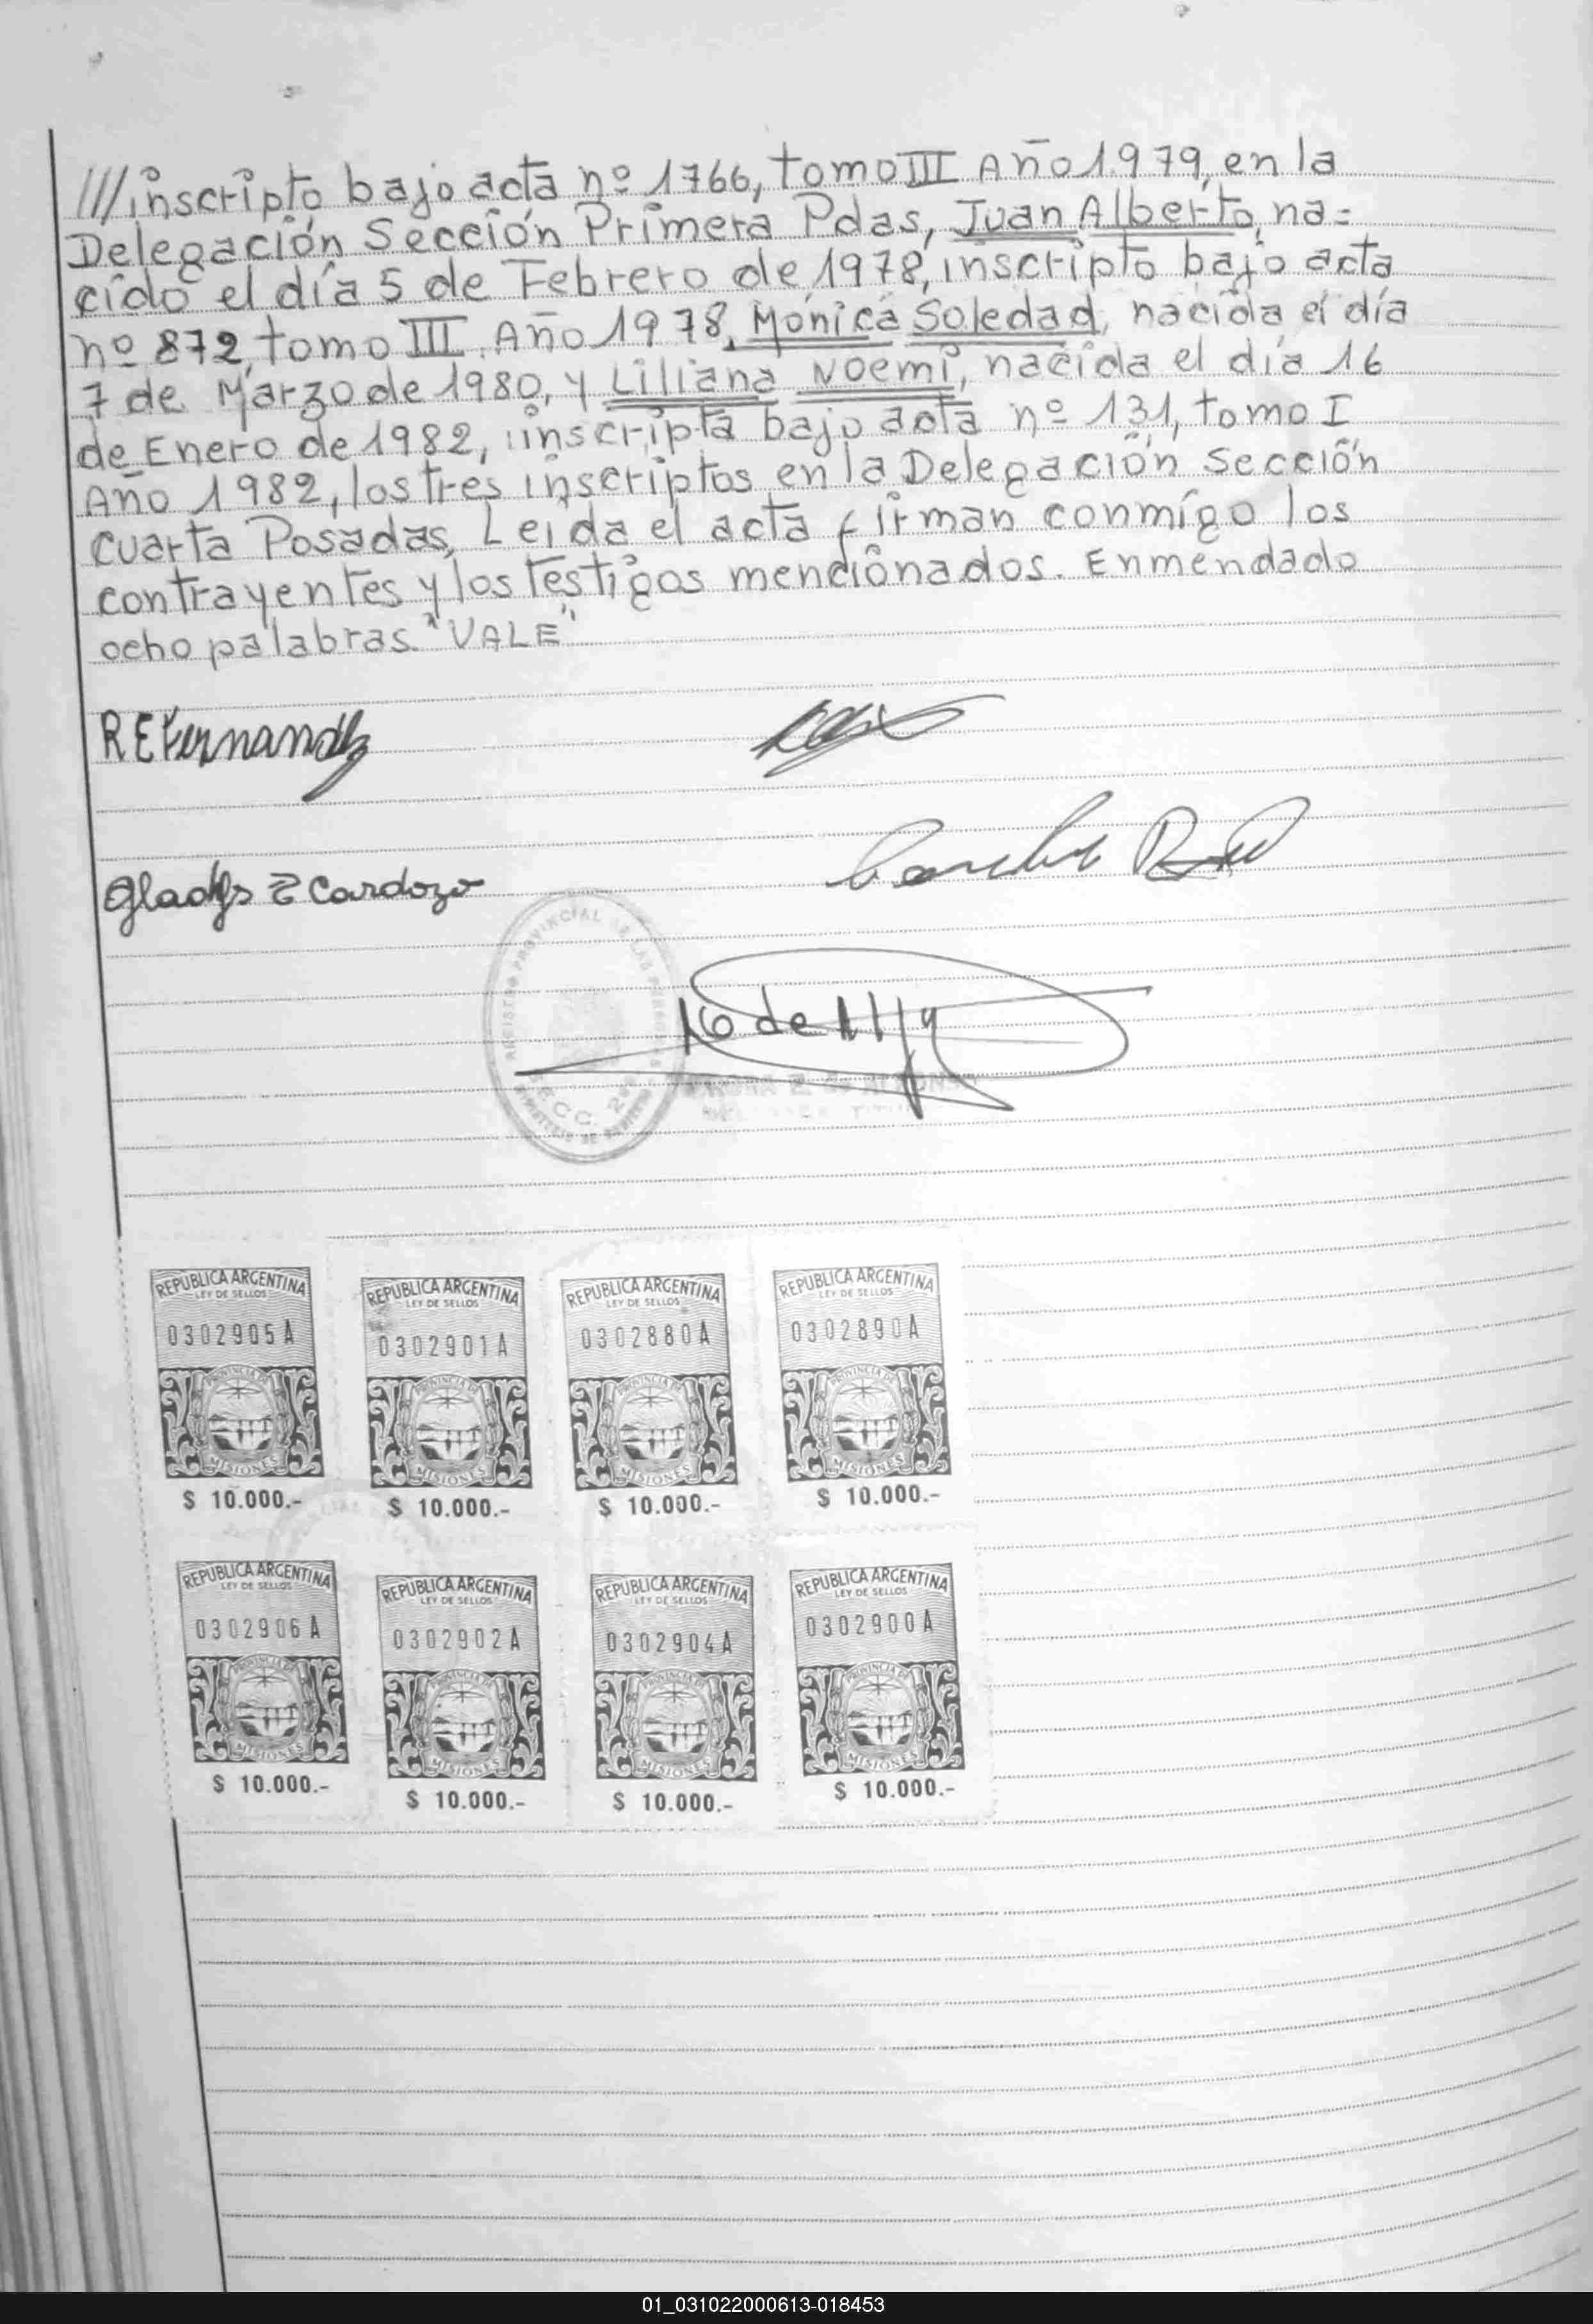 ///inscripto bajo acta nº 1766, tomo III Año 1.979, en la
Delegación Sección Primera Pdas, Juan Alberto, na=
cido el día 5 de Febrero de 1978, inscripto bajo acta
nº 872, tomo III. Año 1978, Mónica Soledad, nacida el día
7 de Marzo de 1980, y Liliana Noemi, nacida el día 16
de Enero de 1982, inscripta bajo acta nº 131, tomo I
Año 1982, los tres inscriptos en la Delegación Sección
Cuarta Posadas, Leida el acta firman conmigo los
contrayentes y los testigos mencionados. Enmendado
ocho palabras "VALE"
R E Fernandez
Gladys E Cardozo
REGISTRO PROVINCIAL DE LAS PERSONAS
SECC. 2
REPUBLICA ARGENTINA
LEY DE SELLOS
0302905A
PROVINCIA DE
MISIONES
$ 10.000.-
REPUBLICA ARGENTINA
LEY DE SELLOS
0302901A
PROVINCIA DE
MISIONES
$ 10.000.-
REPUBLICA ARGENTINA
LEY DE SELLOS
0302880A
PROVINCIA DE
MISIONES
$ 10.000.-
REPUBLICA ARGENTINA
LEY DE SELLOS
0302890A
PROVINCIA DE
MISIONES
$ 10.000.-
REPUBLICA ARGENTINA
LEY DE SELLOS
0302906A
PROVINCIA DE
MISIONES
$ 10.000.-
REPUBLICA ARGENTINA
LEY DE SELLOS
0302902A
PROVINCIA DE
MISIONES
$ 10.000.-
REPUBLICA ARGENTINA
LEY DE SELLOS
0302904A
PROVINCIA DE
MISIONES
$ 10.000.-
REPUBLICA ARGENTINA
LEY DE SELLOS
0302900A
PROVINCIA DE
MISIONES
$ 10.000.-
01_031022000613-018453